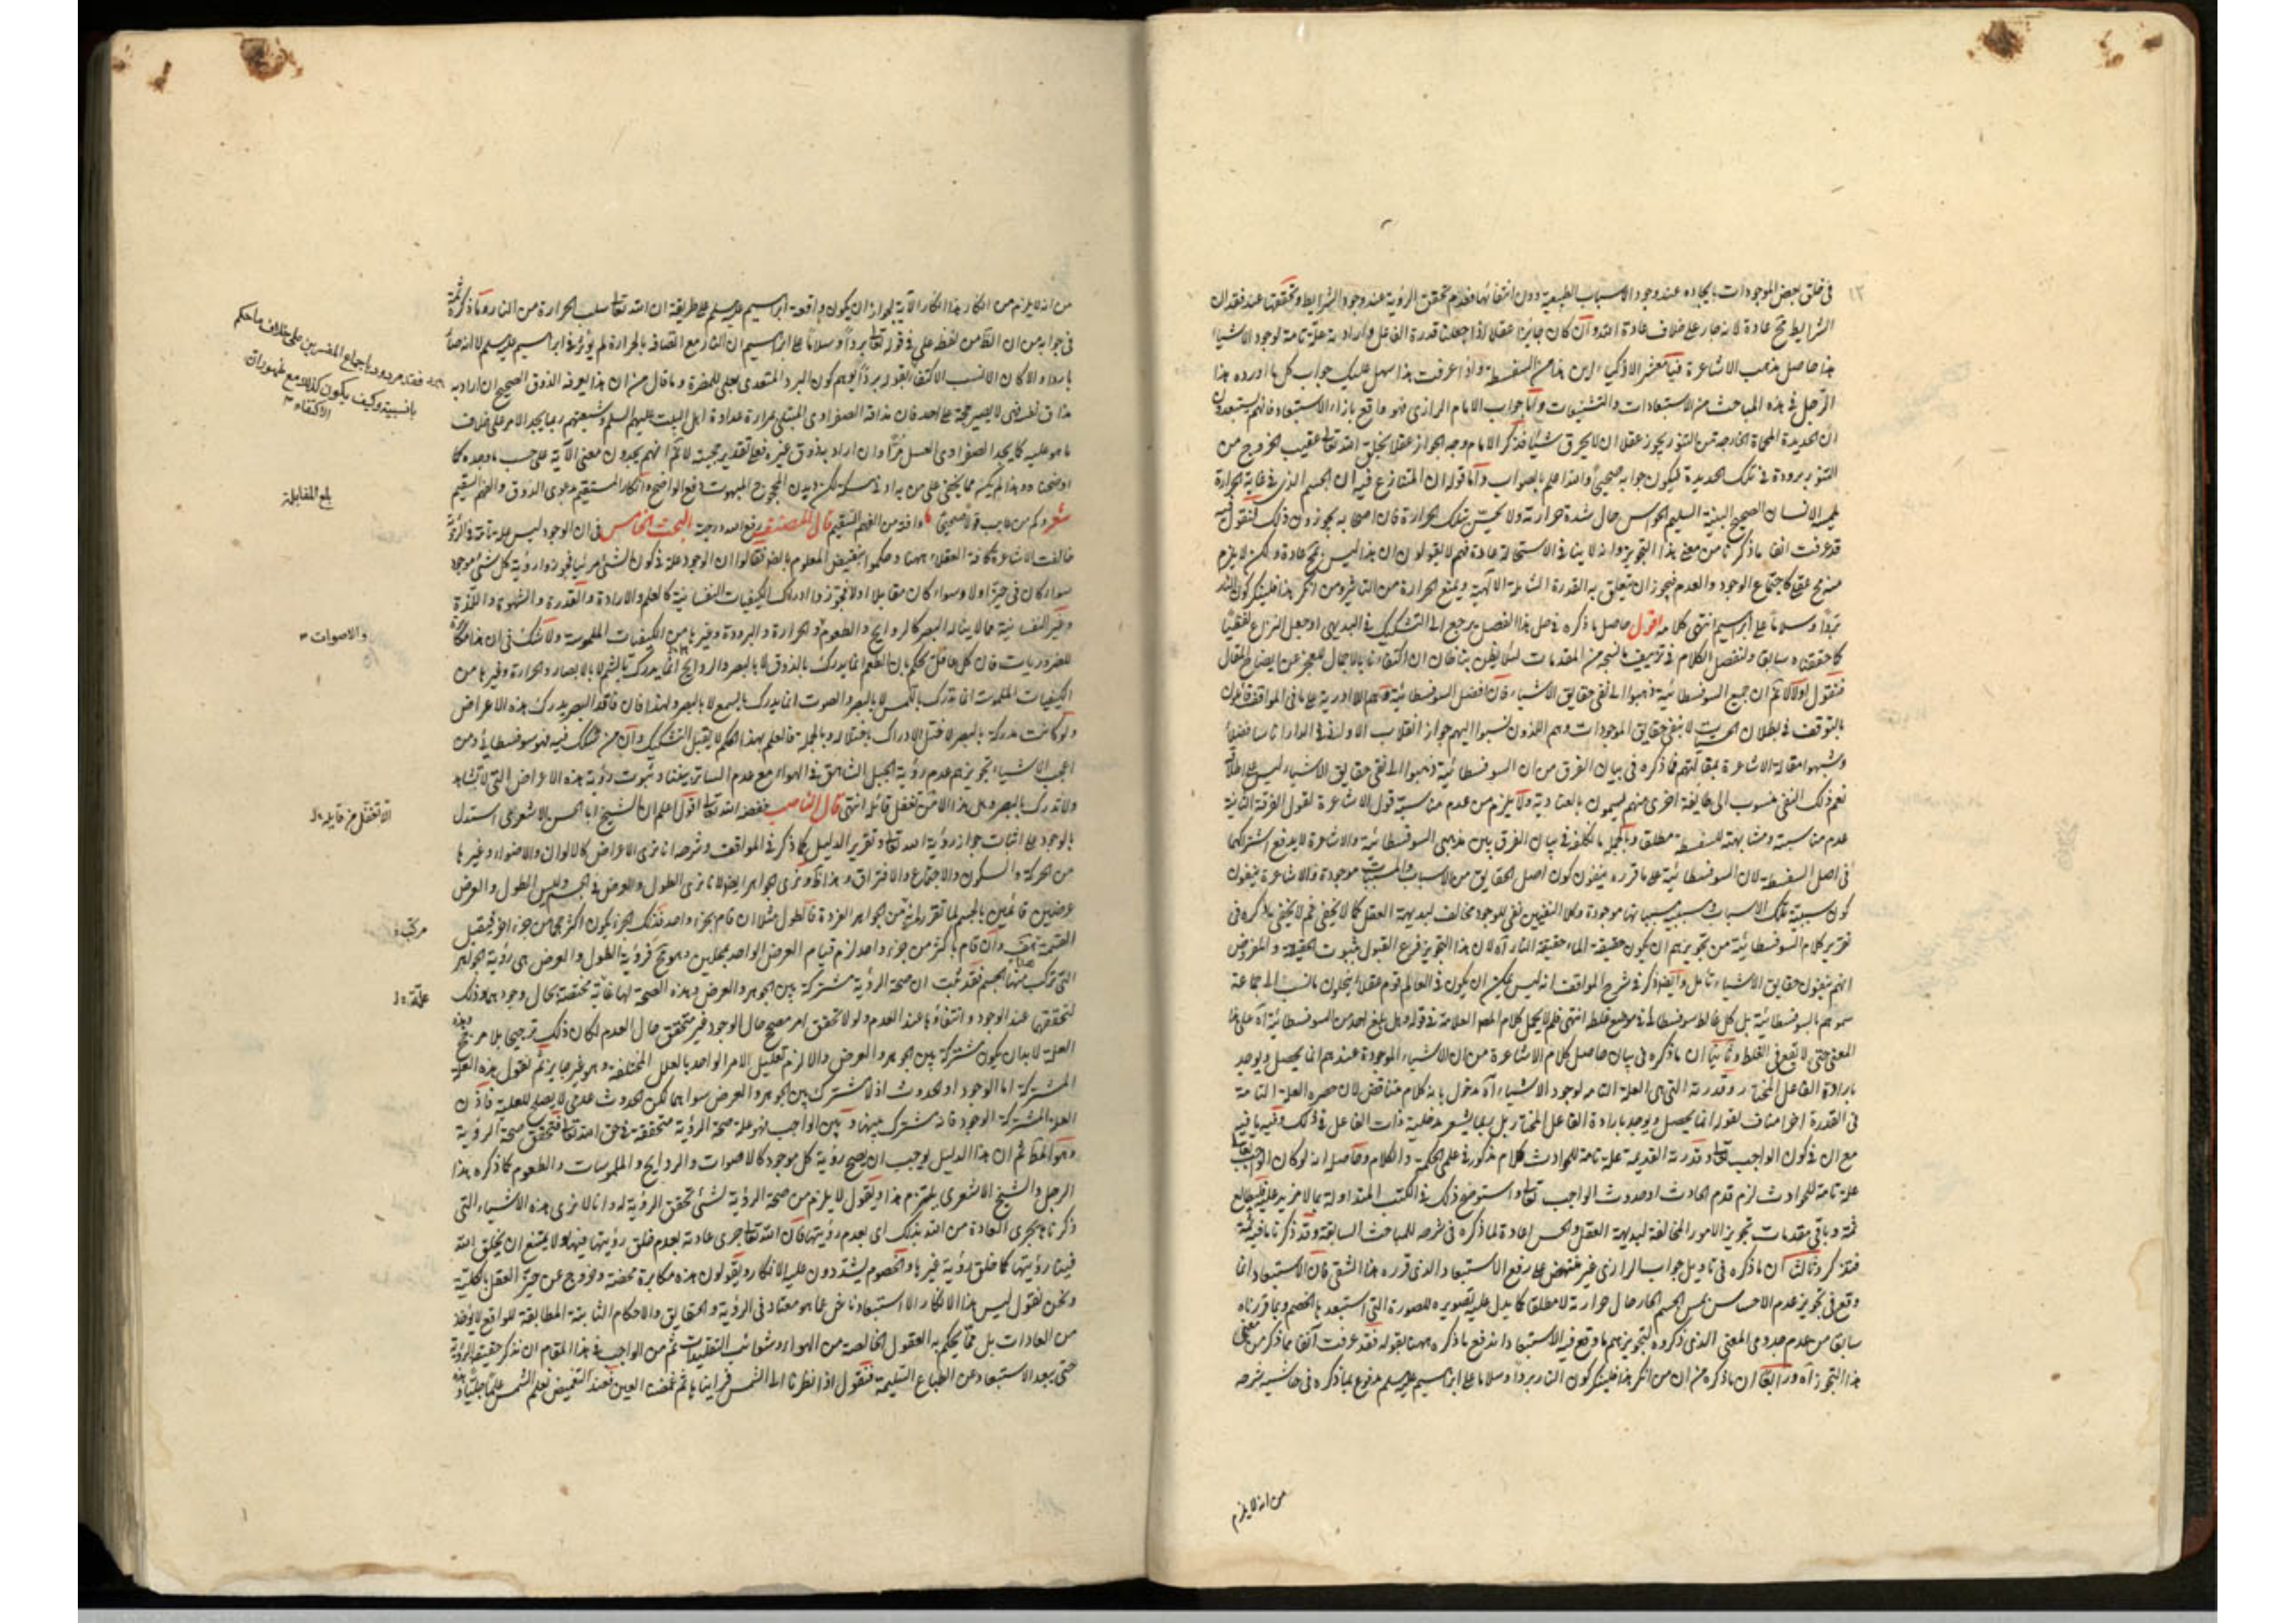 في خلق بعض الموجودات بايجاده عند وجود الاسباب الطبيعية دون انتفائها فعدم تحقق الرؤية عند وجود الشرايط وتحققها عند فقدان
الشرايط مح عادة لانه جار على خلاف عادة الله وان كان جايزا عقلا اذا جعلنا قدرة الفاعل وارادته علة تامة لوجود الاشياء
هذا حاصل مذهب الاشاعرة فيا معشر الاذكياء اين هذا من السفسطة واذا عرفت هذا سهل عليك جواب كل ما اورده هذا
الرجل في هذه المباحث من الاستبعادات والتشنيعات واما جواب الامام الرازي فهو واقع بازاء الاستبعاد فانهم يستبعدون
ان الحديدة المحماة الخارجة من التنور يجوز عقلا ان لا يحرق شيئا فذكر الامام وجه الجواز عقلا بخلق الله تعالى عقيب الخروج من
التنور برودة في تلك الحديدة فيكون جوابه صحيحا والله اعلم بالصواب واما قوله ان المتنازع فيه ان الجسم الذي في غاية الحرارة
يلمسه الانسان الصحيح البنية السليم الحواس حال شدة حرارته ولا يحس بتلك الحرارة فان اصحابه يجوزون ذلك فنقول فيه
قد عرفت انفا ما ذكرنا من معنى هذا التجويز وانه لا ينافي الاستحالة عادة فهم لا يقولون ان هذا ليس مح عادة ولكن لا يلزم
منه مح عقلي كاجتماع الوجود والعدم فيجوز ان يتعلق به القدرة الشاملة الالهية ويمنع الحرارة من التاثير ومن انكر هذا فلينكر كون النار
بردا وسلاما على ابراهيم انتهى كلامه اقول حاصل ما ذكره في هذا الفصل يرجع الى التشكيك في البديهي او جعل النزاع لفظيا
كما حققناه سابقا ولنفصل الكلام في تزييف ما نسجه من المقدمات لئلا يظن بنا ظان ان اكتفاءنا بالاجمال للعجز عن ايضاح المقال
فنقول اولا لا نم ان جميع السوفسطائية ذهبوا الى نفي حقايق الاشياء فان افضل السوفسطائية وهم اللاادرية على ما في المواقف قائلون
بالتوقف في بطلان الحسيات لا بنفي حقايق الموجودات وهم الذين نسبوا اليهم جواز انقلاب الاواني في الدار اناسا فضلاء
وشبهوا مقالة الاشاعرة بمقالتهم فما ذكره في بيان الفرق من ان السوفسطائية ذهبوا الى نفي حقايق الاشياء ليس على اطلاقه
نعم ذلك النفي منسوب الى طايفة اخرى منهم يسمون بالعنادية ولا يلزم من عدم مناسبة قول الاشاعرة لقول الفرقة الثانية
عدم مناسبته ومشابهته للسفسطة مطلقا وبالجملة ما تكلفه في بيان الفرق بين مذهبي السوفسطائية والاشاعرة لا يدفع اشتراكهما
في اصل السفسطة لان السوفسطائية على ما قرره ينفون كون اصل الحقايق من الاسباب والمسببات موجودة والاشاعرة ينفون
كون سببية تلك الاسباب ومسببية مسبباتها موجودة وكلا النفيين نفي للوجود مخالف لبديهة العقل كما لا يخفى ثم لا يخفى ما ذكره في
تقرير كلام السوفسطائية من تجويزهم ان يكون حقيقة الماء حقيقة النار اه لان هذا التجويز فرع القبول بثبوت الحقيقة والمفروض
انهم ينفون حقايق الاشياء تامل وايضا ذكر في شرح المواقف انه ليس يمكن ان يكون في العالم قوم عقلاء ينتحلون بالنسبة الى جماعة
سموهم بالسوفسطائية بل كل غالط سوفسطائي في موضع غلطه انتهى فلم لا يحمل كلام المصر العلامة في قوله وهل بلغ احد من السوفسطائية اه على هذا
المعنى حتى لا تقع في الغلط وثانيا ان ما ذكره في بيان حاصل كلام الاشاعرة من ان الاشياء الموجودة عندهم انما يحصل ويوجد
بارادة الفاعل المختار وقدرته التي هي العلة التامة لوجود الاشياء اه مدخول بانه كلام متناقض لان حصره العلة التامة
في القدرة اخرا مناف لقوله انما يحصل ويوجد بارادة الفاعل المختار بل ربما يشعر بمدخلية ذات الفاعل في ذلك وفيه ما فيه
مع ان في كون الواجب تعالى وقدرته القديمة علة تامة للحوادث كلام مذكور في علمي الحكمة والكلام وحاصله انه لو كان الواجب تعالى
علة تامة للحوادث لزم قدم الحادث او حدوث الواجب تعالى واستوضح ذلك في الكتب المتداولة بما لا مزيد عليه فليطالع
ثمة وباقي مقدمات تجويز الامور المخالفة لبديهة العقل والحس اعادة لما ذكره في شرحه للمباحث السابقة وقد ذكرنا ما فيه ثمة
فتذكر وثالثا ان ما ذكره في تاويل جواب الرازي غير منتهض على رفع الاستبعاد الذي قرره هذا الشقي فان الاستبعاد انما
وقع في تجويز عدم الاحساس بلمس الجسم الحار حال حرارته لا مطلقا كما يدل عليه تصويره للصورة التي استبعد بها الخصم وبما قررناه
سابقا من عدم جدوى المعنى الذي ذكروه لتجويزهم ما وقع فيه الاستبعاد اندفع ما ذكره ههنا بقوله فقد عرفت آنفا ما ذكر من معنى
هذا التجوز اه ورابعا ان ما ذكره من ان من انكر هذا فلينكر كون النار بردا وسلاما على ابراهيم عليه السلم مدفوع بما ذكره في حاشية شرحه
من انه لا يلزم
من انه لا يلزم من انكار هذا انكار الآية لجواز ان يكون واقعة ابراهيم عليه السلم على طريقة ان الله تعالى سلب الحرارة من النار وما ذكره ثمة
في جوابه من ان الظ من لفظ على في قوله تعالى بردا وسلاما على ابراهيم ان النار مع اتصافه بالحرارة لم يؤثر في ابراهيم عليه السلم لا انه صار
باردا والا كان الانسب الاكتفاء بقوله بردا ليوهم كون البرد المتعدي بعلى للمضرة وما قال من ان هذا يعرفه الذوق الصحيح ان اراد به
مذاق نفسه فهي لا يصير حجة على احد فان مذاقه الصفراوي المبتلى بمرارة عداوة اهل البيت عليهم السلم وشيعتهم ربما يجد الامر على خلاف
ما هو عليه كما يجد الصفراوي العسل مرا وان اراد به ذوق غيره فعلى تقدير حجيته لا نم انهم يجدون معنى الآية على حسب ما وجده كما
شعر وكم من عايب قولا صحيحا وافته من الفهم السقيم قال المصنف رفع الله درجته البحث الخامس في ان الوجود ليس علة تامة في الرؤية
خالفت الاشاعرة كافة العقلاء ههنا وحكموا بنقيض المعلوم بالضرورة فقالوا ان الوجود علة في كون الشيء مرئيا فجوزوا رؤية كل شيء موجود
سواء كان في حيز اولا وسواء كان مقابلا اولا فجوزوا ادراك الكيفيات النفسانية كالعلم والارادة والقدرة والشهوة واللذة
وغير النفسانية مما لا يناله البصر كالروايح والطعوم والحرارة والبرودة وغيرها من الكيفيات الملموسة ولا شك في ان هذا مكابرة
للضروريات فان كل عاقل يحكم بان الطعم انما يدرك بالذوق لا بالبصر والروايح انما يدرك بالشم لا بالابصار والحرارة وغيرها من
الكيفيات الملموسة انما يدرك باللمس لا بالبصر والصوت انما يدرك بالسمع لا بالبصر ولهذا فان فاقد البصر يدرك هذه الاعراض
ولو كانت مدركة بالبصر لاختل الادراك باختلاله وبالجملة فالعلم بهذا الحكم لا يقبل التشكيك وان من شكك فيه فهو سوفسطائي ومن
اعجب الاشياء تجويزهم عدم رؤية الجبل الشاهق في الهواء مع عدم الساتر بيننا وثبوت رؤية هذه الاعراض التي لا تشاهد
ولا تدرك بالبصر وهل هذا الا من تغفل قائله انتهى قال الناصب خفضه الله تعالى اقول اعلم ان الشيخ ابا الحسن الاشعري استدل
بالوجود على اثبات جواز رؤية الله تعالى وتقرير الدليل كما ذكر في المواقف وشرحه انا نرى الاعراض كالالوان والاضواء وغيرها
من الحركة والسكون والاجتماع والافتراق وهذا ظ ونرى الجواهر ايضا لانا نرى الطول والعرض في الجسم وليس الطول والعرض
عرضين قائمين بالجسم لما تقرر من انه من الجواهر الفردة فالطول مثلا ان قام بجزء واحد فذلك الجزء يكون اكثر حجما من جزء اخر فيقبل
القسمة هف وان قام باكثر من جزء واحد لزم قيام العرض الواحد بمحلين وهو مح فرؤية الطول والعرض هي رؤية الجواهر
التي تركب منها الجسم فقد ثبت ان صحة الرؤية مشتركة بين الجوهر والعرض وهذه الصحة لها مختصة بحال وجودهما وذلك
لتحققها عند الوجود وانتفاءها عند العدم ولولا تحقق امر مصحح حال الوجود غير متحقق حال العدم لكان ذلك ترجيحا بلا مرجح وهذه
العلة لا بد ان يكون مشتركة بين الجوهر والعرض والا لزم تعليل الامر الواحد بالعلل المختلفة وهو غير جايز ثم نقول هذه العلة
المشتركة اما الوجود او الحدوث اذ لا مشترك بين الجوهر والعرض سواهما لكن الحدوث عدمي لا يصلح للعلية فاذن
العلة المشتركة الوجود فانه مشترك بينها وبين الواجب فهو علة صحة الرؤية متحققة في حق الله تعالى فتحقق صحة الرؤية
وهو المط ثم ان هذا الدليل يوجب ان يصح رؤية كل موجود كالاصوات والروايح والملموسات والطعوم كما ذكره هذا
الرجل والشيخ الاشعري يلتزم هذا ويقول لا يلزم من صحة الرؤية لشيء تحقق الرؤية له وانا لا نرى هذه الاشياء التي
ذكرناها بجرى العادة من الله بذلك اي بعدم رؤيتها فان الله تعالى جرى عادته بعدم خلق رؤيتها فينا ولا يمتنع ان يخلق الله
فينا رؤيتها كما خلق رؤية غيرها والخصوم يشددون عليه الانكار ويقولون هذه مكابرة محضة وخروج عن حيز العقل بالكلية
ونحن نقول ليس هذا الانكار الا استبعادا ناش عما هو معتاد في الرؤية والحقايق والاحكام الثابتة المطابقة للواقع لا يؤخذ
من العادات بل مما يحكم به العقول الخالصة من الهواء وشوائب التقليدات ثم من الواجب في هذا المقام ان نذكر حقيقة الرؤية
حتى يبعد الاستبعاد عن الطباع السليمة فنقول اذا نظرنا الى الشمس فرايناها ثم غمضنا العين فعند التغميض نعلم الشمس علما جليا وهذه
فقد مردود باجماع المفسرين على خلاف ما حكم
بالنسبية وكيف يكون كذلك مع ظهور ان
الاكتفاء
بلغ المقابلة
والاصوات
الا تغفل من قايله
مركب
علة